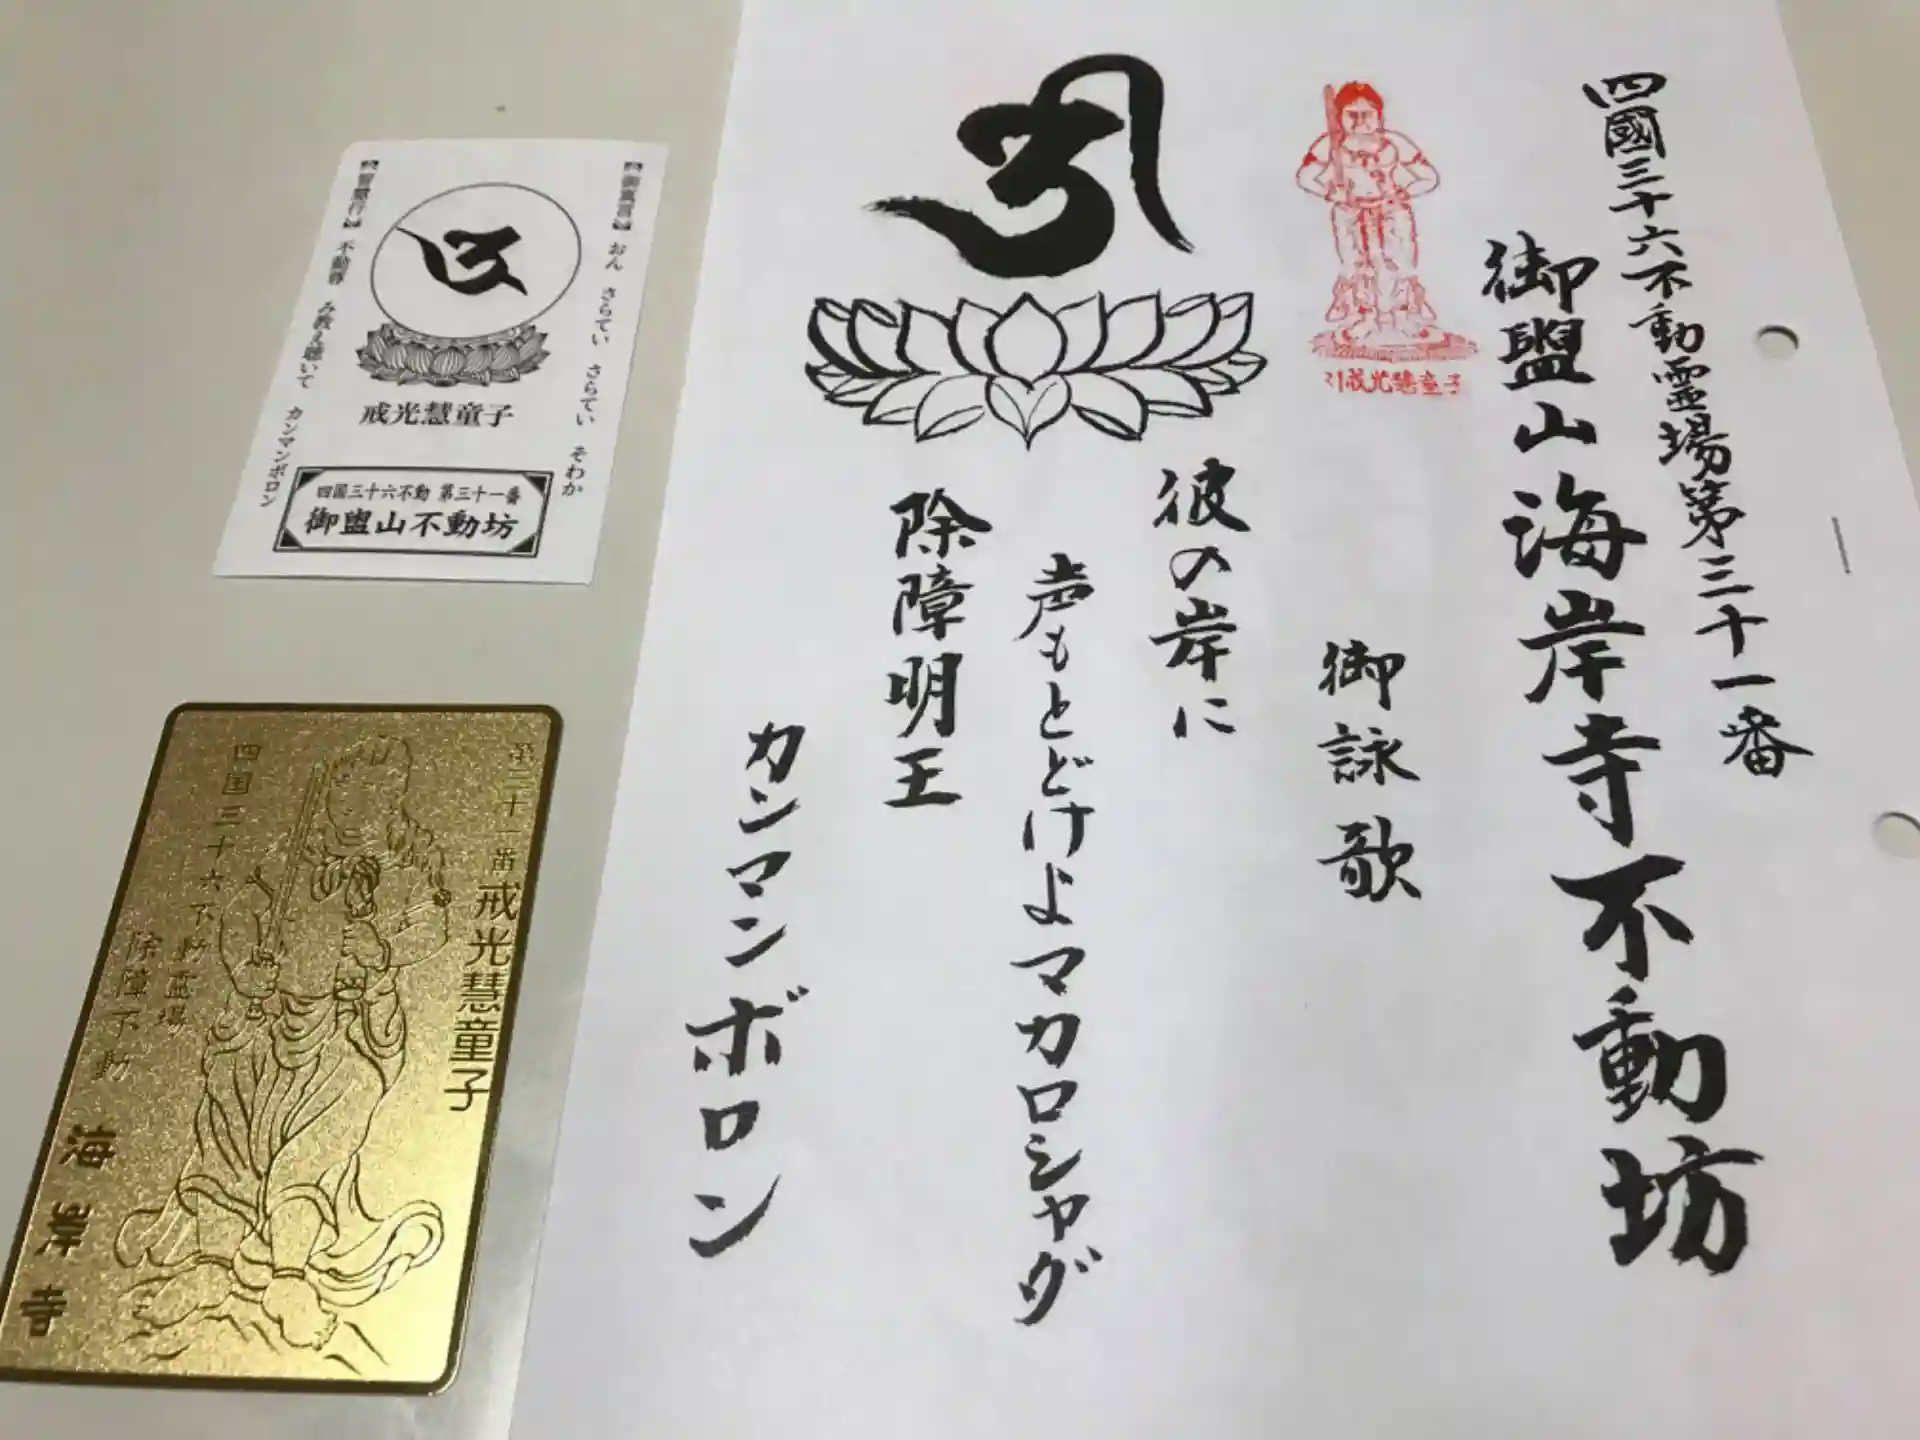 四國三十六不動霊場第三十一番
御盥山海岸寺不動坊
御詠歌
彼の岸に
声もとどけよマカロシャダ
除障明王
カンマンボロン
戒光慧童子
【御真言】 おん さらてい さらてい そわか
【智慧行】 不動尊 み教え聴いて カンマンボロン
戒光慧童子
四国三十六不動 第三十一番
御盥山不動坊
第三十一番 戒光慧童子
四国三十六不動霊場
除障不動
海岸寺